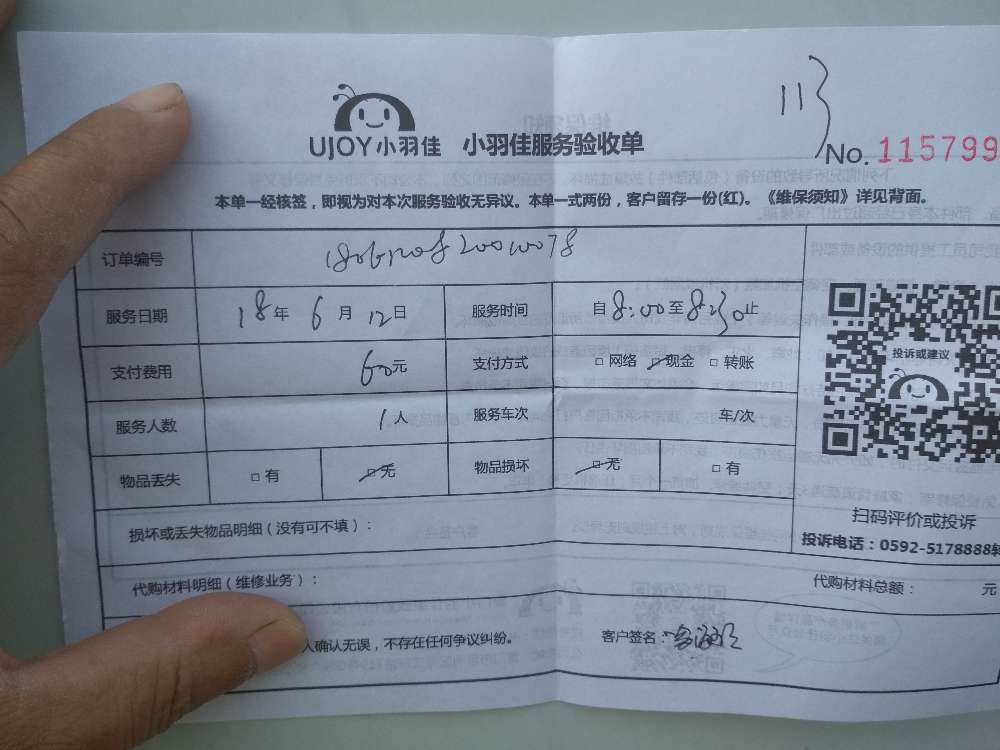 113
UJOY小羽佳 小羽佳服务验收单
No. 115799
本单一经核签，即视为对本次服务验收无异议。本单一式两份，客户留存一份(红)。《维保须知》详见背面。
订单编号
服务日期 18年 6月 12日 服务时间 自8:00至8:30止
支付费用 60元 支付方式 □网络 □现金 □转账
服务人数 1人 服务车次 车/次
物品丢失 □有 □无 物品损坏 □无 □有
投诉或建议
扫码评价或投诉
投诉电话：0592-5178888转
损坏或丢失物品明细（没有可不填）：
代购材料明细（维修业务）： 代购材料总额： 元
人确认无误，不存在任何争议纠纷。 客户签名：